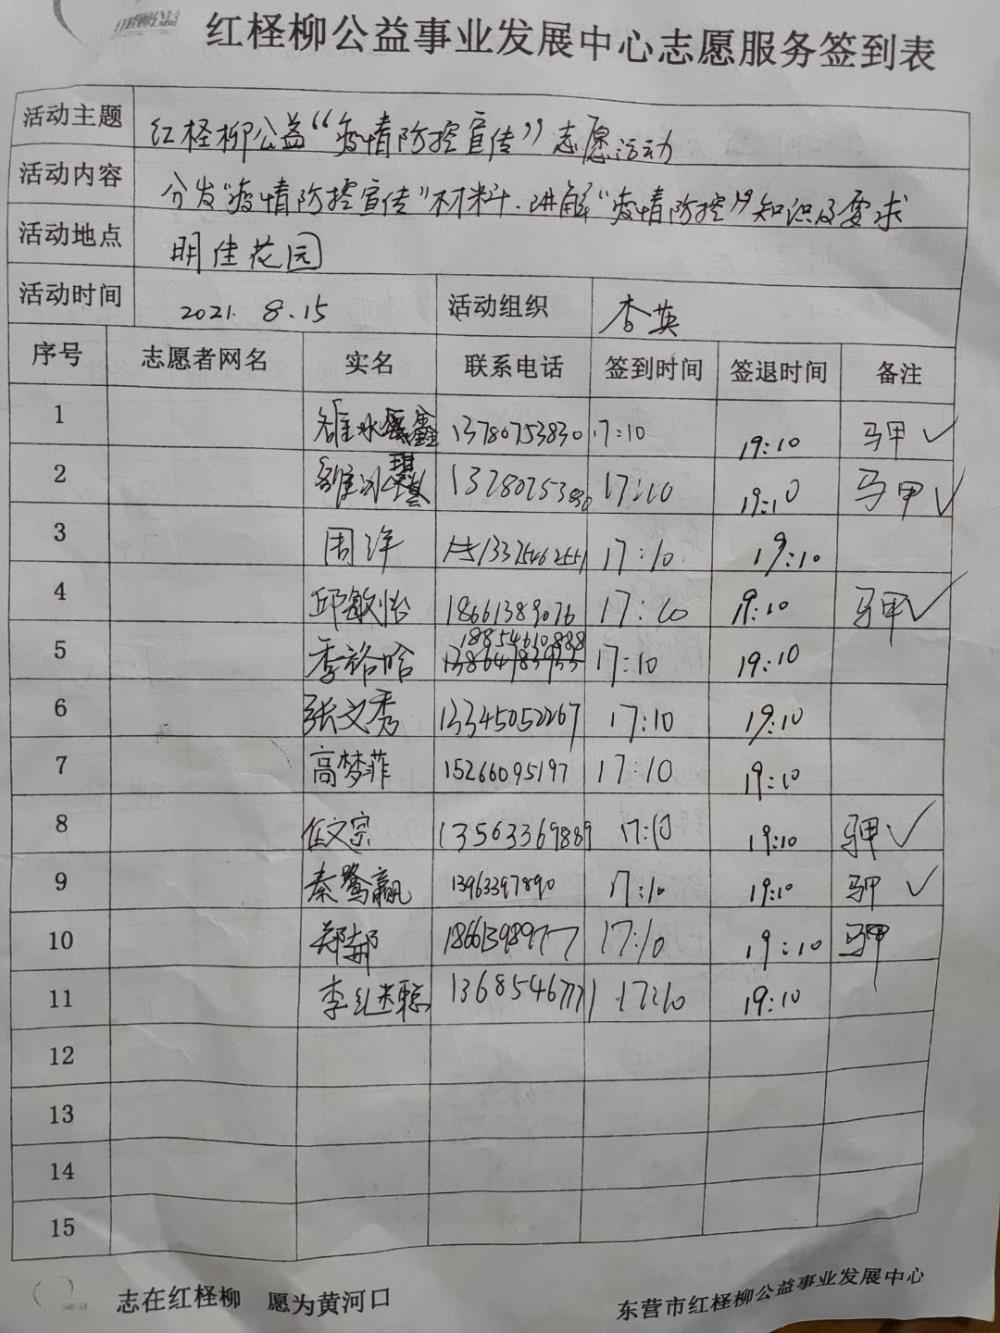 红柽柳公益事业发展中心志愿服务签到表
活动主题 红柽柳公益“疫情防控宣传”志愿活动
活动内容 分发“疫情防控宣传”材料、讲解“疫情防控”知识及要求
活动地点 明佳花园
活动时间 2021.8.15 活动组织 李英
序号 志愿者网名 实名 联系电话 签到时间 签退时间 备注
1 13780753830 17:10 19:10 马甲 ✓
2 17:10 19:10 马甲 ✓
3 周洋 17:10 19:10
4 邱敏怡 18661389076 17:10 19:10 马甲 ✓
18854610888
5 季裕晗 13864783933 17:10 19:10
6 张文秀 13345052267 17:10 19:10
7 高梦菲 15266095197 17:10 19:10
8 任文宗 13563369889 17:10 19:10 马甲 ✓
9 秦鹭赢 13963397890 17:10 19:10 马甲 ✓
10 18661398977 17:10 19:10 马甲
11 13685467771 17:10 19:10
12
13
14
15
志在红柽柳 愿为黄河口
东营市红柽柳公益事业发展中心